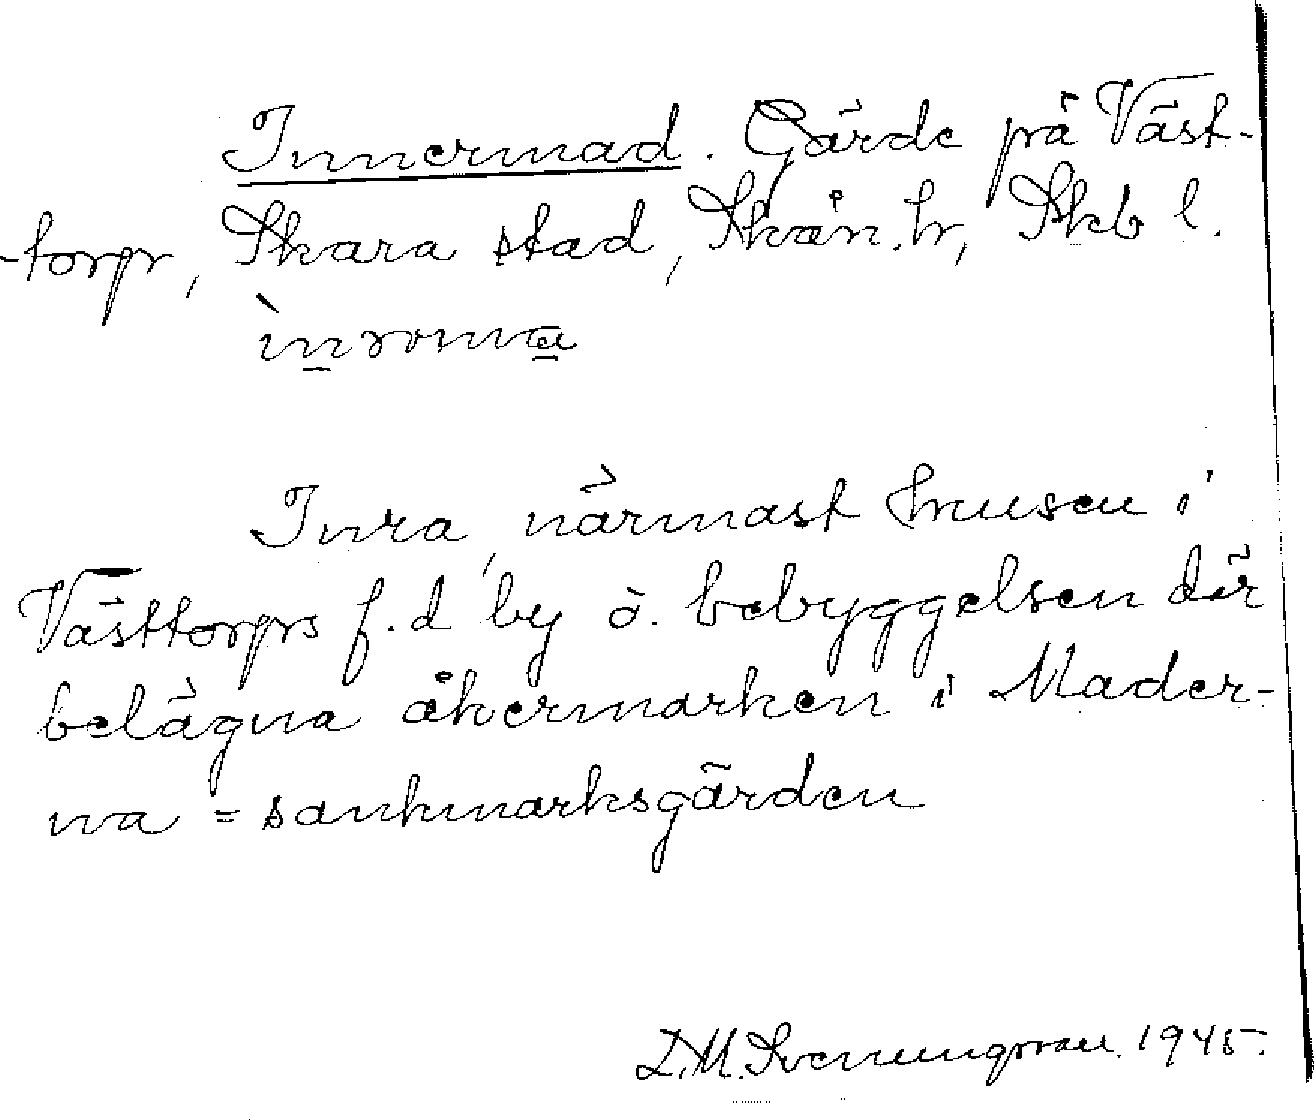 Innermad. Gärde på Väst-
-torp, Skara stad, Skån. hr, Skb l.
Inra, närmast husen i
Västtorps f.d by o. bebyggelsen där
belägna åkermarken i Mader-
na = sankmarksgärden
D.M. Svenungsson. 1945.